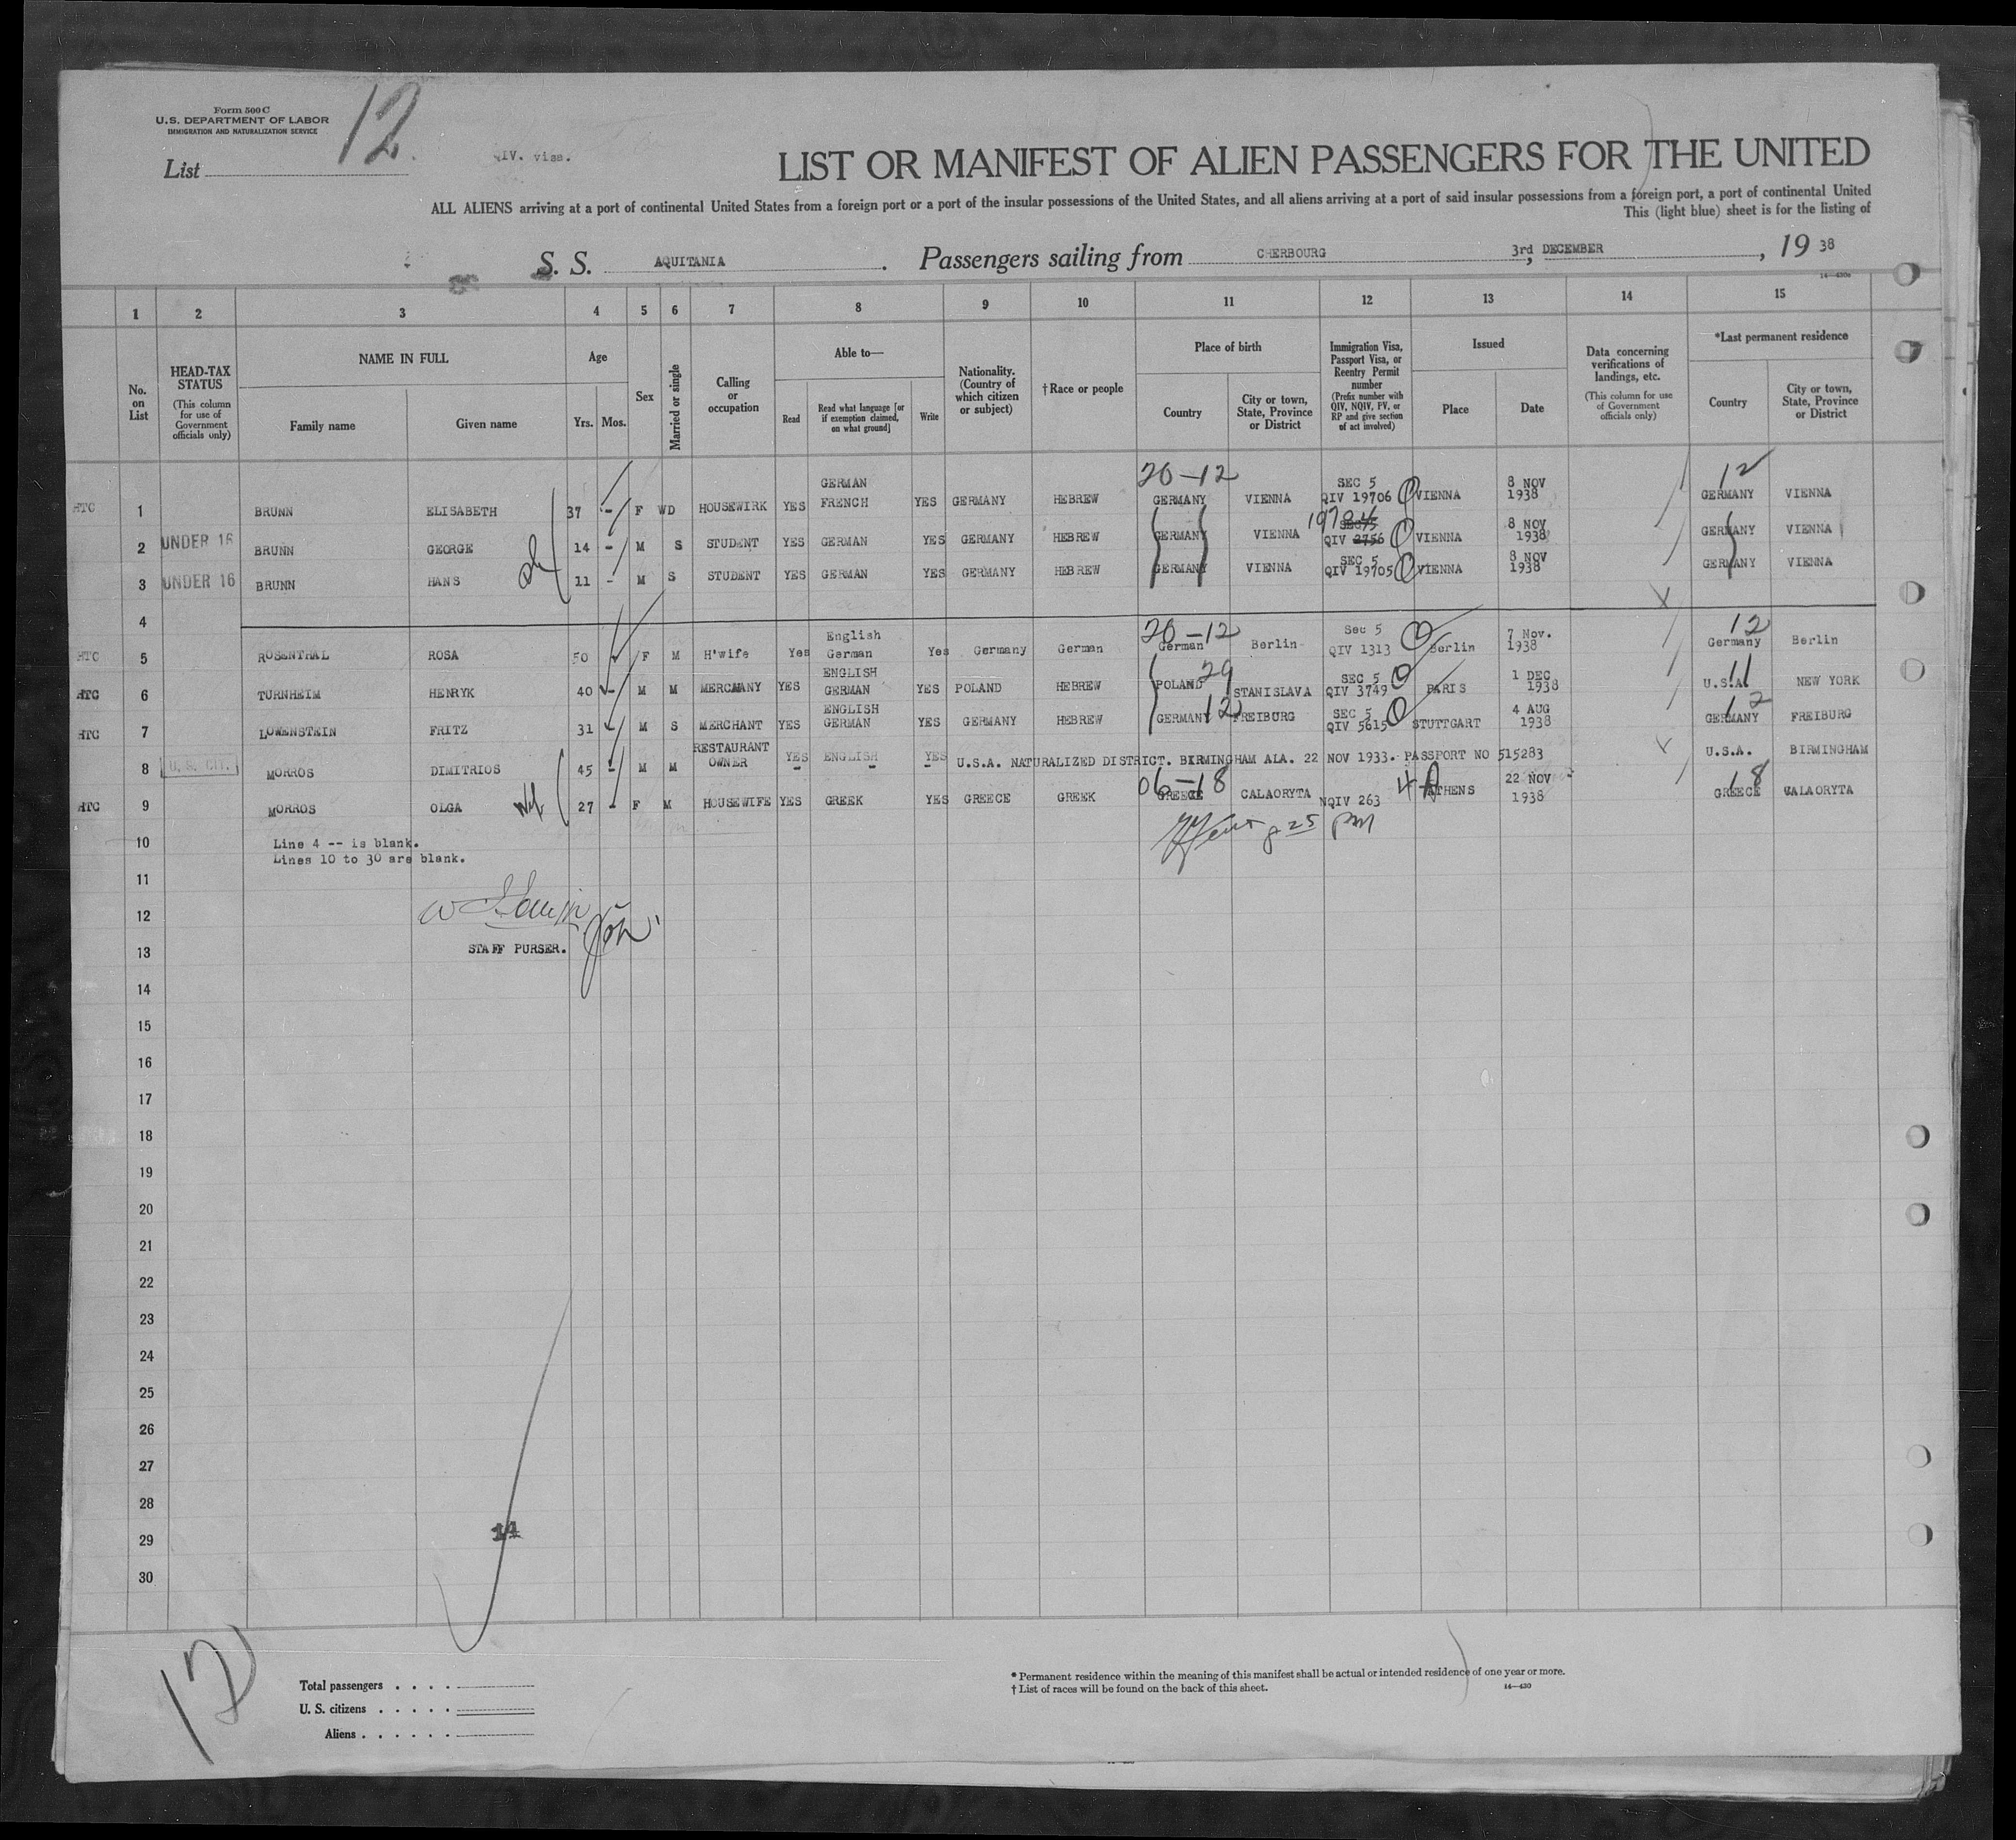 Form 500 C
U.S. DEPARTMENT OF LABOR
IMMIGRATION AND NATURALIZATION SERVICE
List 12
QIV. visa.
LIST OR MANIFEST OF ALIEN PASSENGERS FOR THE UNITED
ALL ALIENS arriving at a port of continental United States from a foreign port or a port of the insular possessions of the United States, and all aliens arriving at a port of said insular possessions from a foreign port, a port of continental United
This (light blue) sheet is for the listing of
S. S. AQUITANIA . Passengers sailing from CHERBOURG 3rd, DECEMBER , 19 38
14—430a
1 2 3 4 5 6 7 8 9 10 11 12 13 14 15
No. on List
HEAD-TAX STATUS (This column for use of Government officials only)
NAME IN FULL
Family name Given name
Age
Yrs. Mos.
Sex
Married or single
Calling or occupation
Able to—
Read
Read what language [or if exemption claimed, on what ground]
Write
Nationality. (Country of which citizen or subject)
† Race or people
Place of birth
Country
City or town, State, Province or District
Immigration Visa, Passport Visa, or Reentry Permit number (Prefix number with QIV, NQIV, PV, or RP and give section of act involved)
Issued
Place Date
Data concerning verifications of landings, etc. (This column for use of Government officials only)
*Last permanent residence
Country
City or town, State, Province or District
20-12 12
HTC 1 BRUNN ELISABETH 37 - F WD HOUSEWIRK YES GERMAN FRENCH YES GERMANY HEBREW GERMANY VIENNA SEC 5 QIV 19706 VIENNA 8 NOV 1938 GERMANY VIENNA
2 UNDER 16 BRUNN GEORGE 14 - M S STUDENT YES GERMAN YES GERMANY HEBREW GERMANY VIENNA 19704 SEC 5 QIV 2756 VIENNA 8 NOV 1938 GERMANY VIENNA
3 UNDER 16 BRUNN HANS 11 - M S STUDENT YES GERMAN YES GERMANY HEBREW GERMANY VIENNA SEC 5 QIV 19705 VIENNA 8 NOV 1938 GERMANY VIENNA
4
20-12 12
HTC 5 ROSENTHAL ROSA 50 F M H'wife Yes English German Yes Germany German German Berlin Sec 5 QIV 1313 Berlin 7 Nov. 1938 Germany Berlin
HTC 6 TURNHEIM HENRYK 40 - M M MERCHANY YES ENGLISH GERMAN YES POLAND HEBREW POLAND 29 STANISLAVA SEC 5 QIV 3749 PARIS 1 DEC 1938 U.S.A. 11 NEW YORK
HTC 7 LOWENSTEIN FRITZ 31 M S MERCHANT YES ENGLISH GERMAN YES GERMANY HEBREW GERMANY 12 FREIBURG SEC 5 QIV 5615 STUTTGART 4 AUG 1938 GERMANY 12 FREIBURG
8 U.S. CIT. MORROS DIMITRIOS 45 - M M RESTAURANT OWNER YES ENGLISH YES U.S.A. NATURALIZED DISTRICT. BIRMINGHAM ALA. 22 NOV 1933. PASSPORT NO 515283 U.S.A. BIRMINGHAM
HTC 9 MORROS OLGA 27 - F M HOUSEWIFE YES GREEK YES GREECE GREEK 06-18 GREECE CALAORYTA NQIV 263 4A ATHENS 22 NOV 1938 GREECE 18 CALAORYTA
8 25 PM
10 Line 4 -- is blank.
Lines 10 to 30 are blank.
11
12
13 STAFF PURSER.
14
15
16
17
18
19
20
21
22
23
24
25
26
27
28
29 14
30
12
Total passengers . . . .
U. S. citizens . . . . .
Aliens . . . . . .
* Permanent residence within the meaning of this manifest shall be actual or intended residence of one year or more.
† List of races will be found on the back of this sheet. 14—430